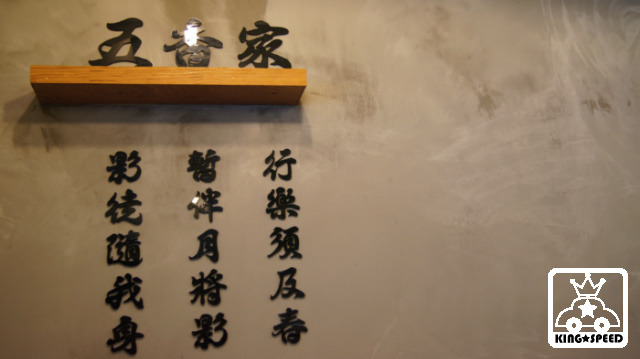 五番家
行樂須及春
暫伴月將影
影徒隨我身
KING★SPEED